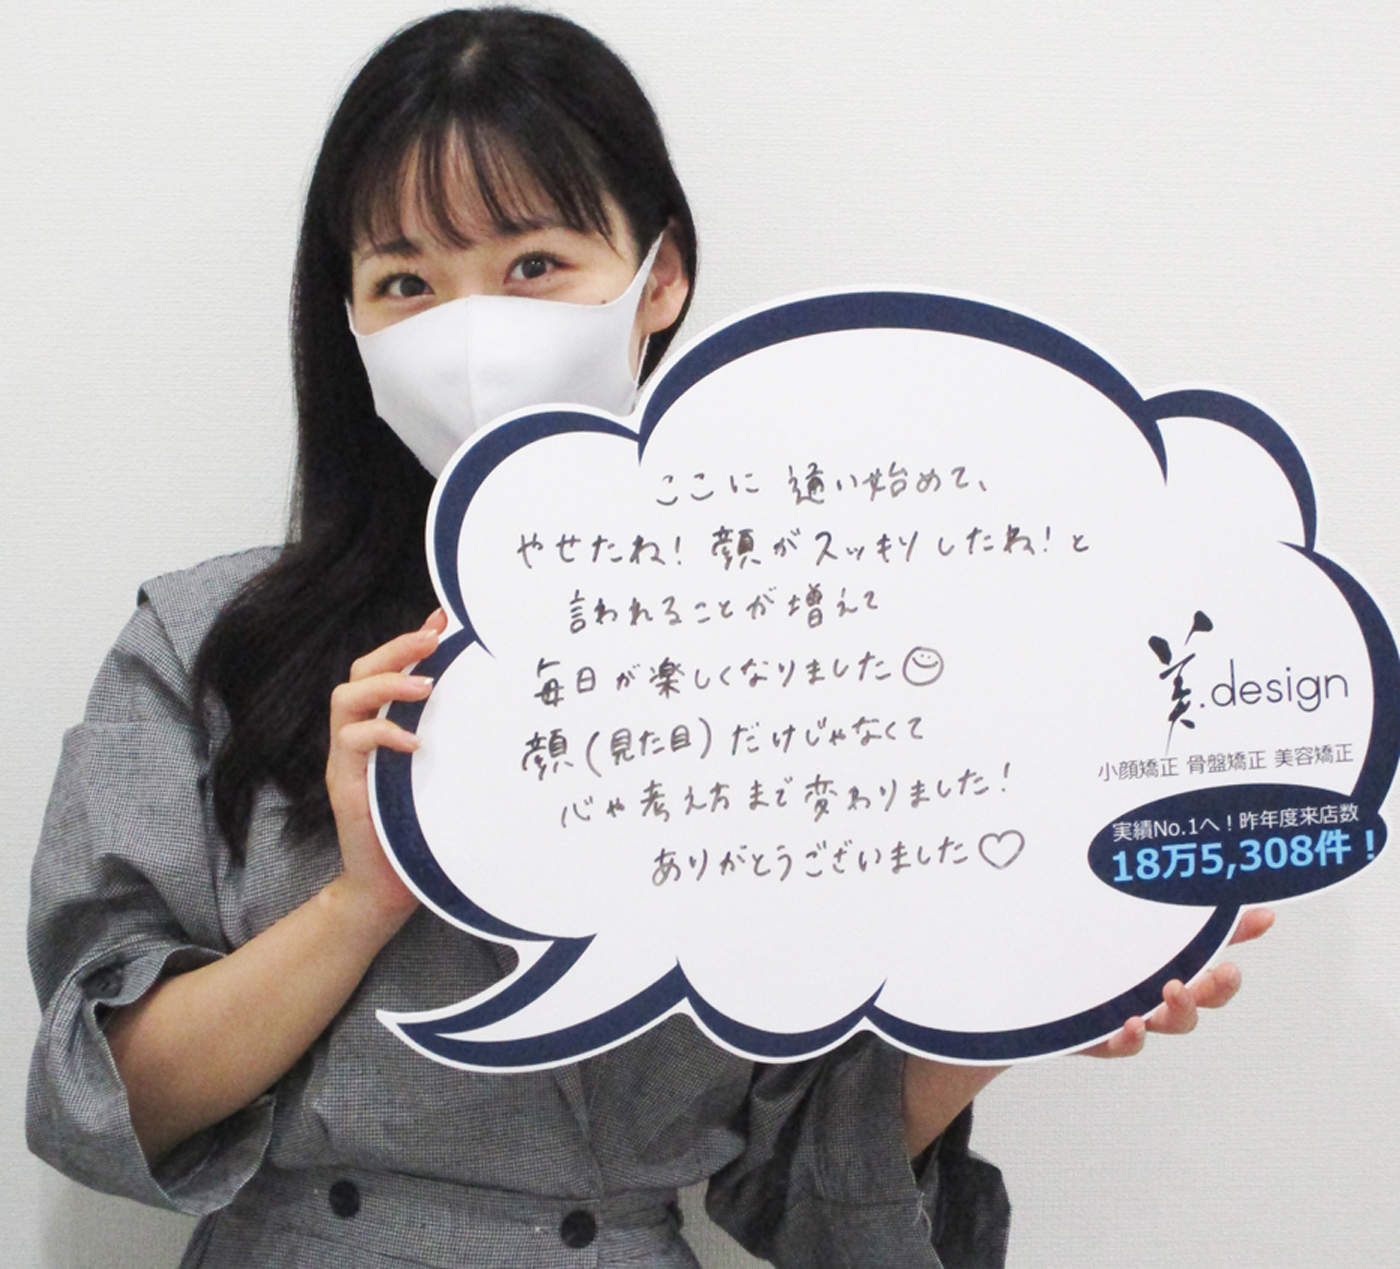 ここに通い始めて、
やせたね！顔がスッキリしたね！と
言われることが増えて
毎日が楽しくなりました
顔(見た目)だけじゃなくて
心や考え方まで変わりました！
ありがとうございました♡
美.design
小顔矯正 骨盤矯正 美容矯正
実績No.1へ！昨年度来店数
18万5,308件！